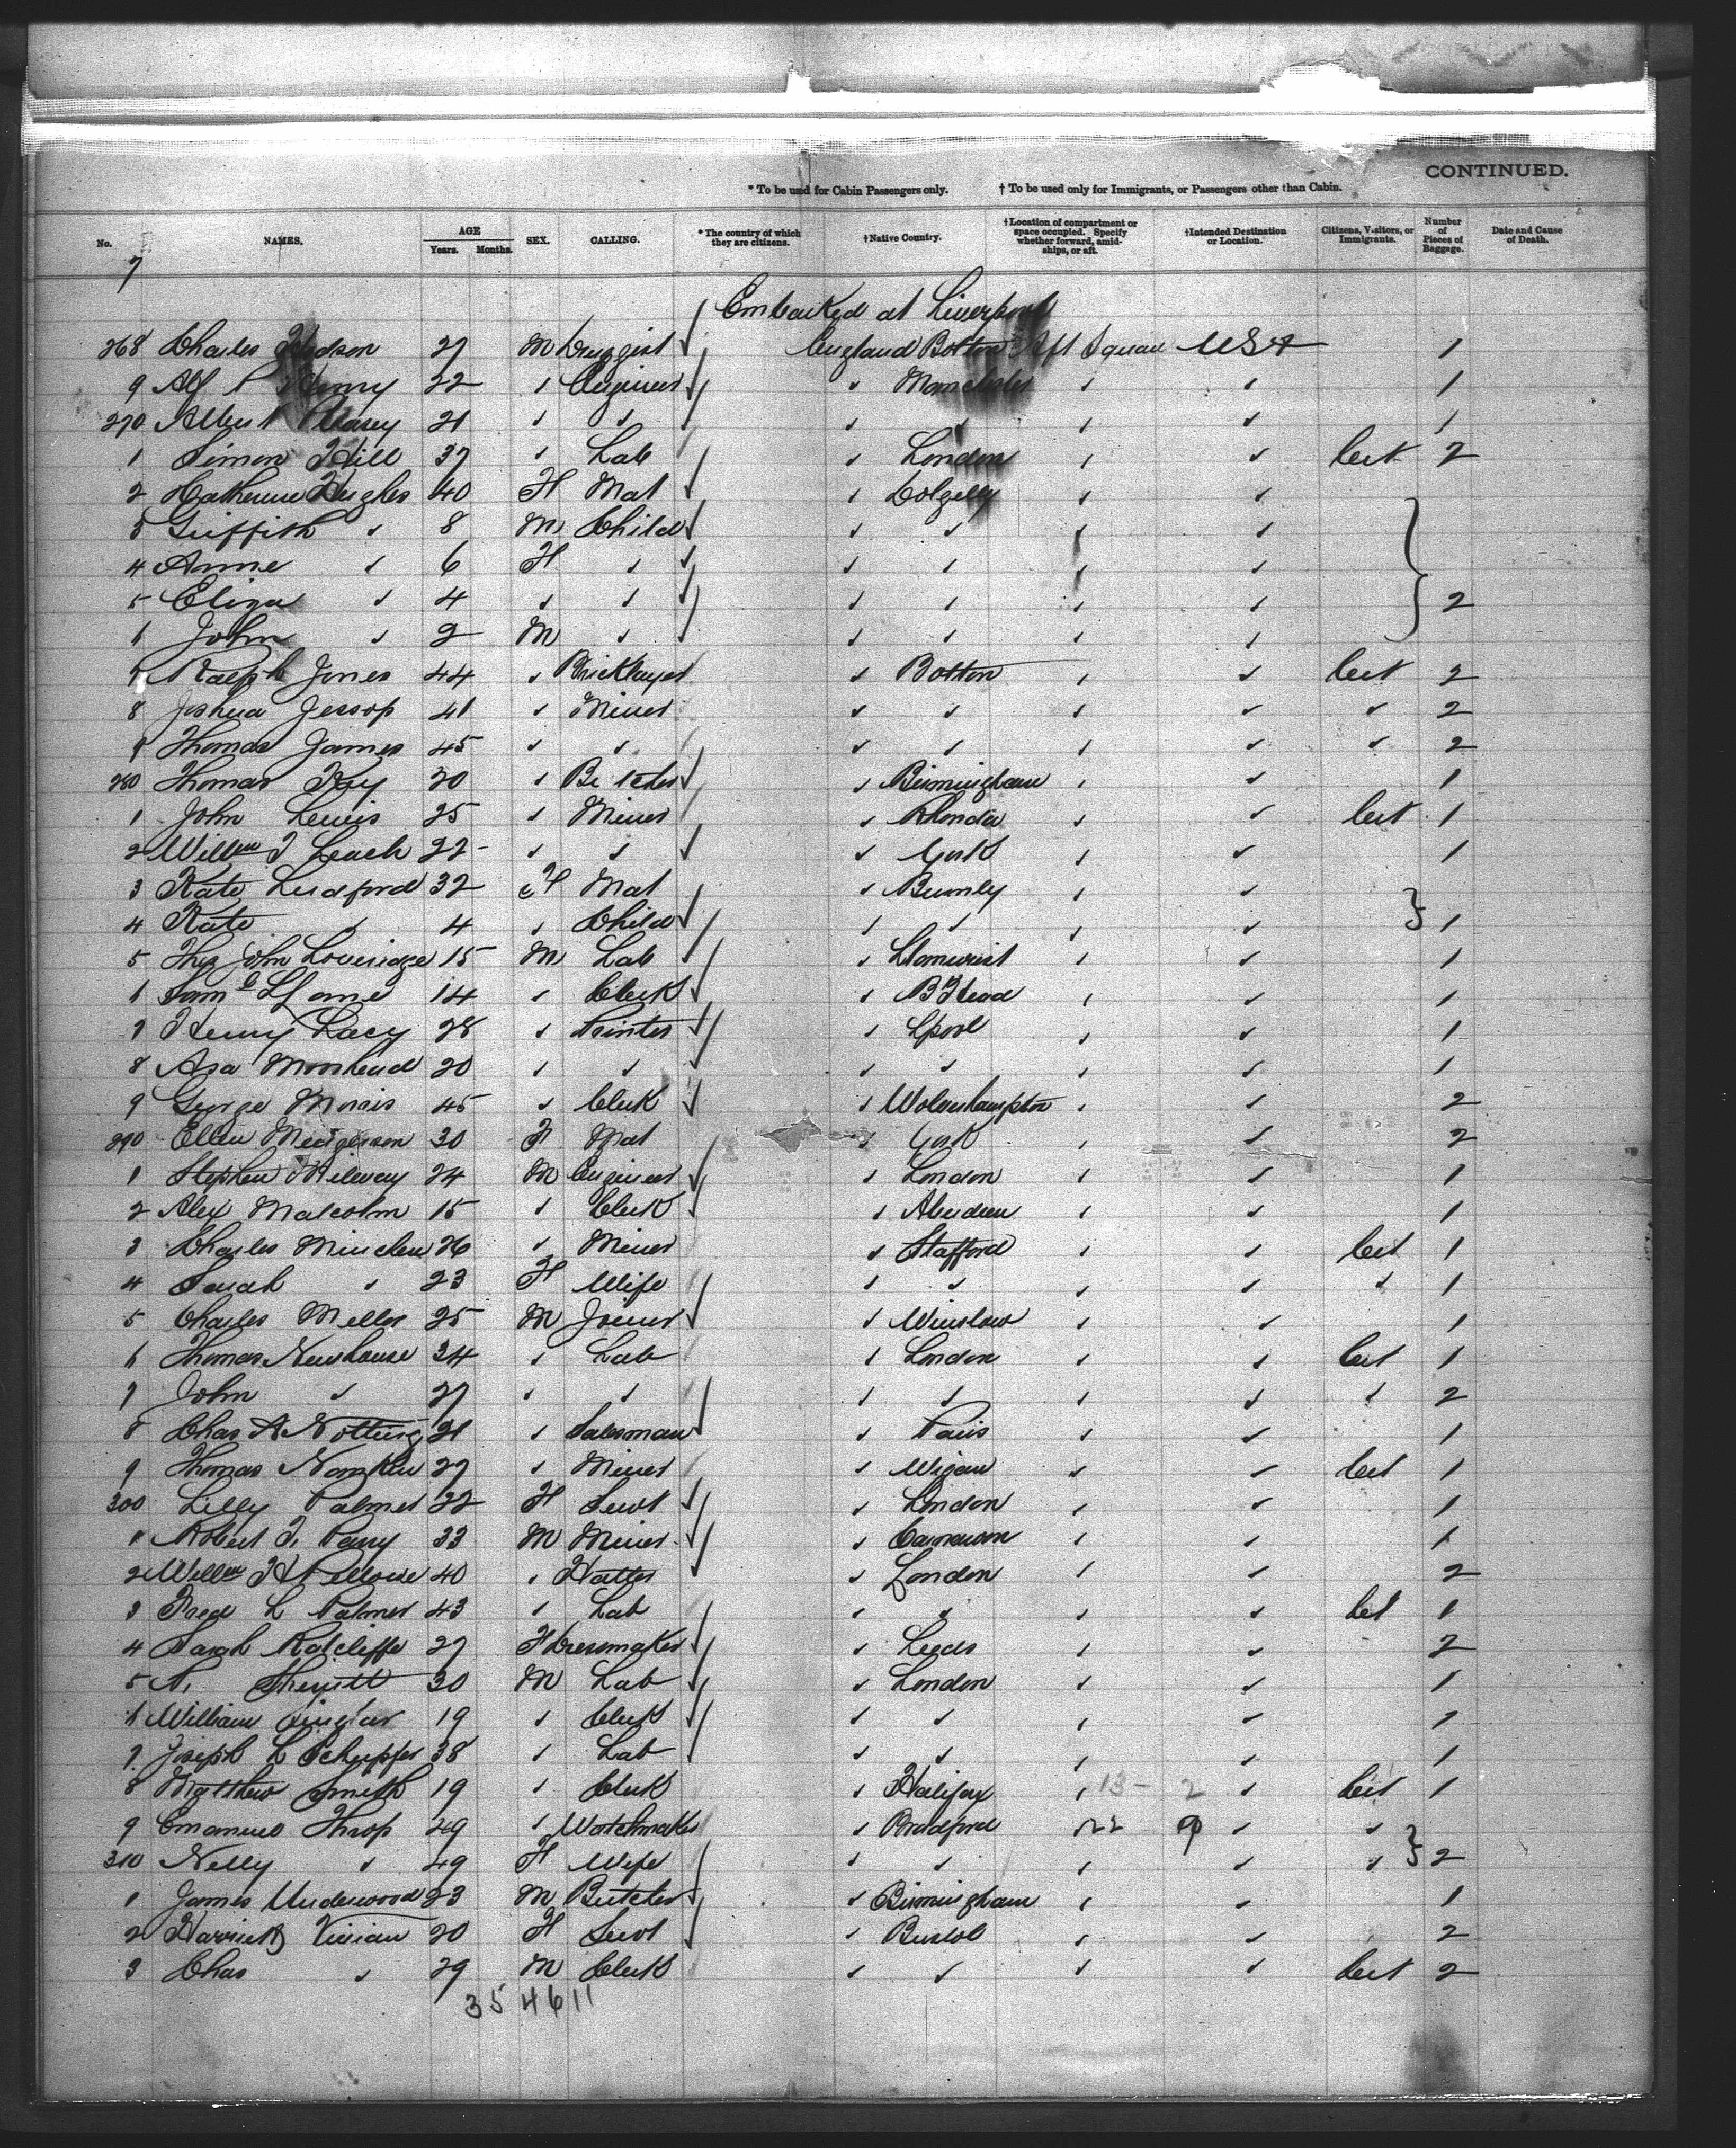 CONTINUED.
* To be used for Cabin Passengers only. † To be used only for Immigrants, or Passengers other than Cabin.
No. NAMES. AGE Years. Months. SEX. CALLING. * The country of which they are citizens. † Native Country. † Location of compartment or space occupied. Specify whether forward, amidships, or aft. † Intended Destination or Location. Citizens, Visitors, or Immigrants. Number of Pieces of Baggage. Date and Cause of Death.
7
Embarked at Liverpool
268 Charles Hudson 27 M Druggist England Bolton Aft Squar USA 1
9 Alf P Henry 22 " Engineer " Manchester " " 1
270 Albert 21 " " " " " " 1
1 Simon Hill 37 " Lab " London " " Cit 2
2 Catherine Hughes 40 F Mat " Dolgelly " "
3 Griffith " 8 M Child " " " "
4 Anne " 6 F " " " " "
5 Eliza " 4 " " " " " " 2
6 John " 2 M " " " " "
7 Ralph Jones 44 " Bricklayer " Bolton " " Cit 2
8 Joshua Jessop 41 " Miner " " " " " 2
9 Thomas James 45 " " " " " " " 2
280 Thomas Key 20 " Butcher " Birmingham " " 1
1 John Lewis 25 " Miner " Rhonda " " Cit 1
2 Willm J Leach 22 " " " York " " 1
3 Kate Ludford 32 F Mat " Burnly " "
4 Kate " 4 " Child " " " " 1
5 Thos John Loveridge 15 M Lab " Llanwrist " " 1
6 Saml 14 " Clerk " B Head " " 1
7 Henry Lacy 28 " Printer " Lpool " " 1
8 Asa Moorhead 20 " " " " " " 1
9 George Morris 45 " Clerk " Wolverhampton " " 2
290 Ellen 30 F Mat " York " " 2
1 Stephen Milway 24 M Engineer " London " " 1
2 Alex Malcolm 15 " Clerk " Aberdeen " " 1
3 Charles 26 " Miner " Stafford " " Cit 1
4 Sarah " 23 F Wife " " " " " 1
5 Charles Mellor 25 M Joiner " Winslow " " 1
6 Thomas Newhouse 34 " Lab " London " " Cit 1
7 John " 27 " " " " " " " 2
8 Chas A Notting 21 " Salesman " Paris " " 1
9 Thomas 27 " Miner " Wigan " " Cit 1
300 Lilly Palmer 22 F Servt " London " " 1
1 Robert T. Parry 33 M Miner " Carnarvon " " 1
2 Willm H 40 " Hatter " London " " 2
3 Fred L Palmer 43 " Lab " " " " Cit 1
4 Sarah Ratcliffe 27 F Dressmaker " Leeds " " 2
5 30 M Lab " London " " 1
6 William 19 " Clerk " " " " 1
7 Joseph L 38 " Lab " " " " 1
8 Matthew Smith 19 " Clerk " Halifax " 13 - 2 " Cit 1
9 Emanuel Throp 49 " Watchmaker " Bradford 22 9 " "
310 Nelly " 49 F Wife " " " " " 2
1 James Underwood 23 M Butcher " Birmingham " " 1
2 Harriett Vivian 20 F Servt " Bristol " " 2
3 Chas " 29 M Clerk " " " " Cit 2
35 46 11